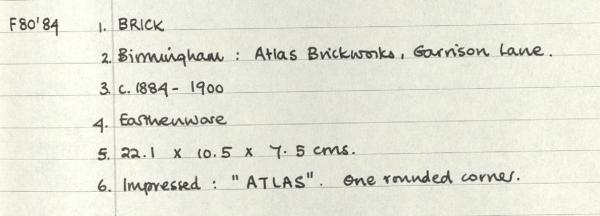 F80'84 1. BRICK
2. Birmingham : Atlas Brickworks, Garrison Lane.
3. c. 1884 - 1900
4. Earthenware
5. 22.1 x 10.5 x 7.5 cms.
6. Impressed : "ATLAS". One rounded corner.